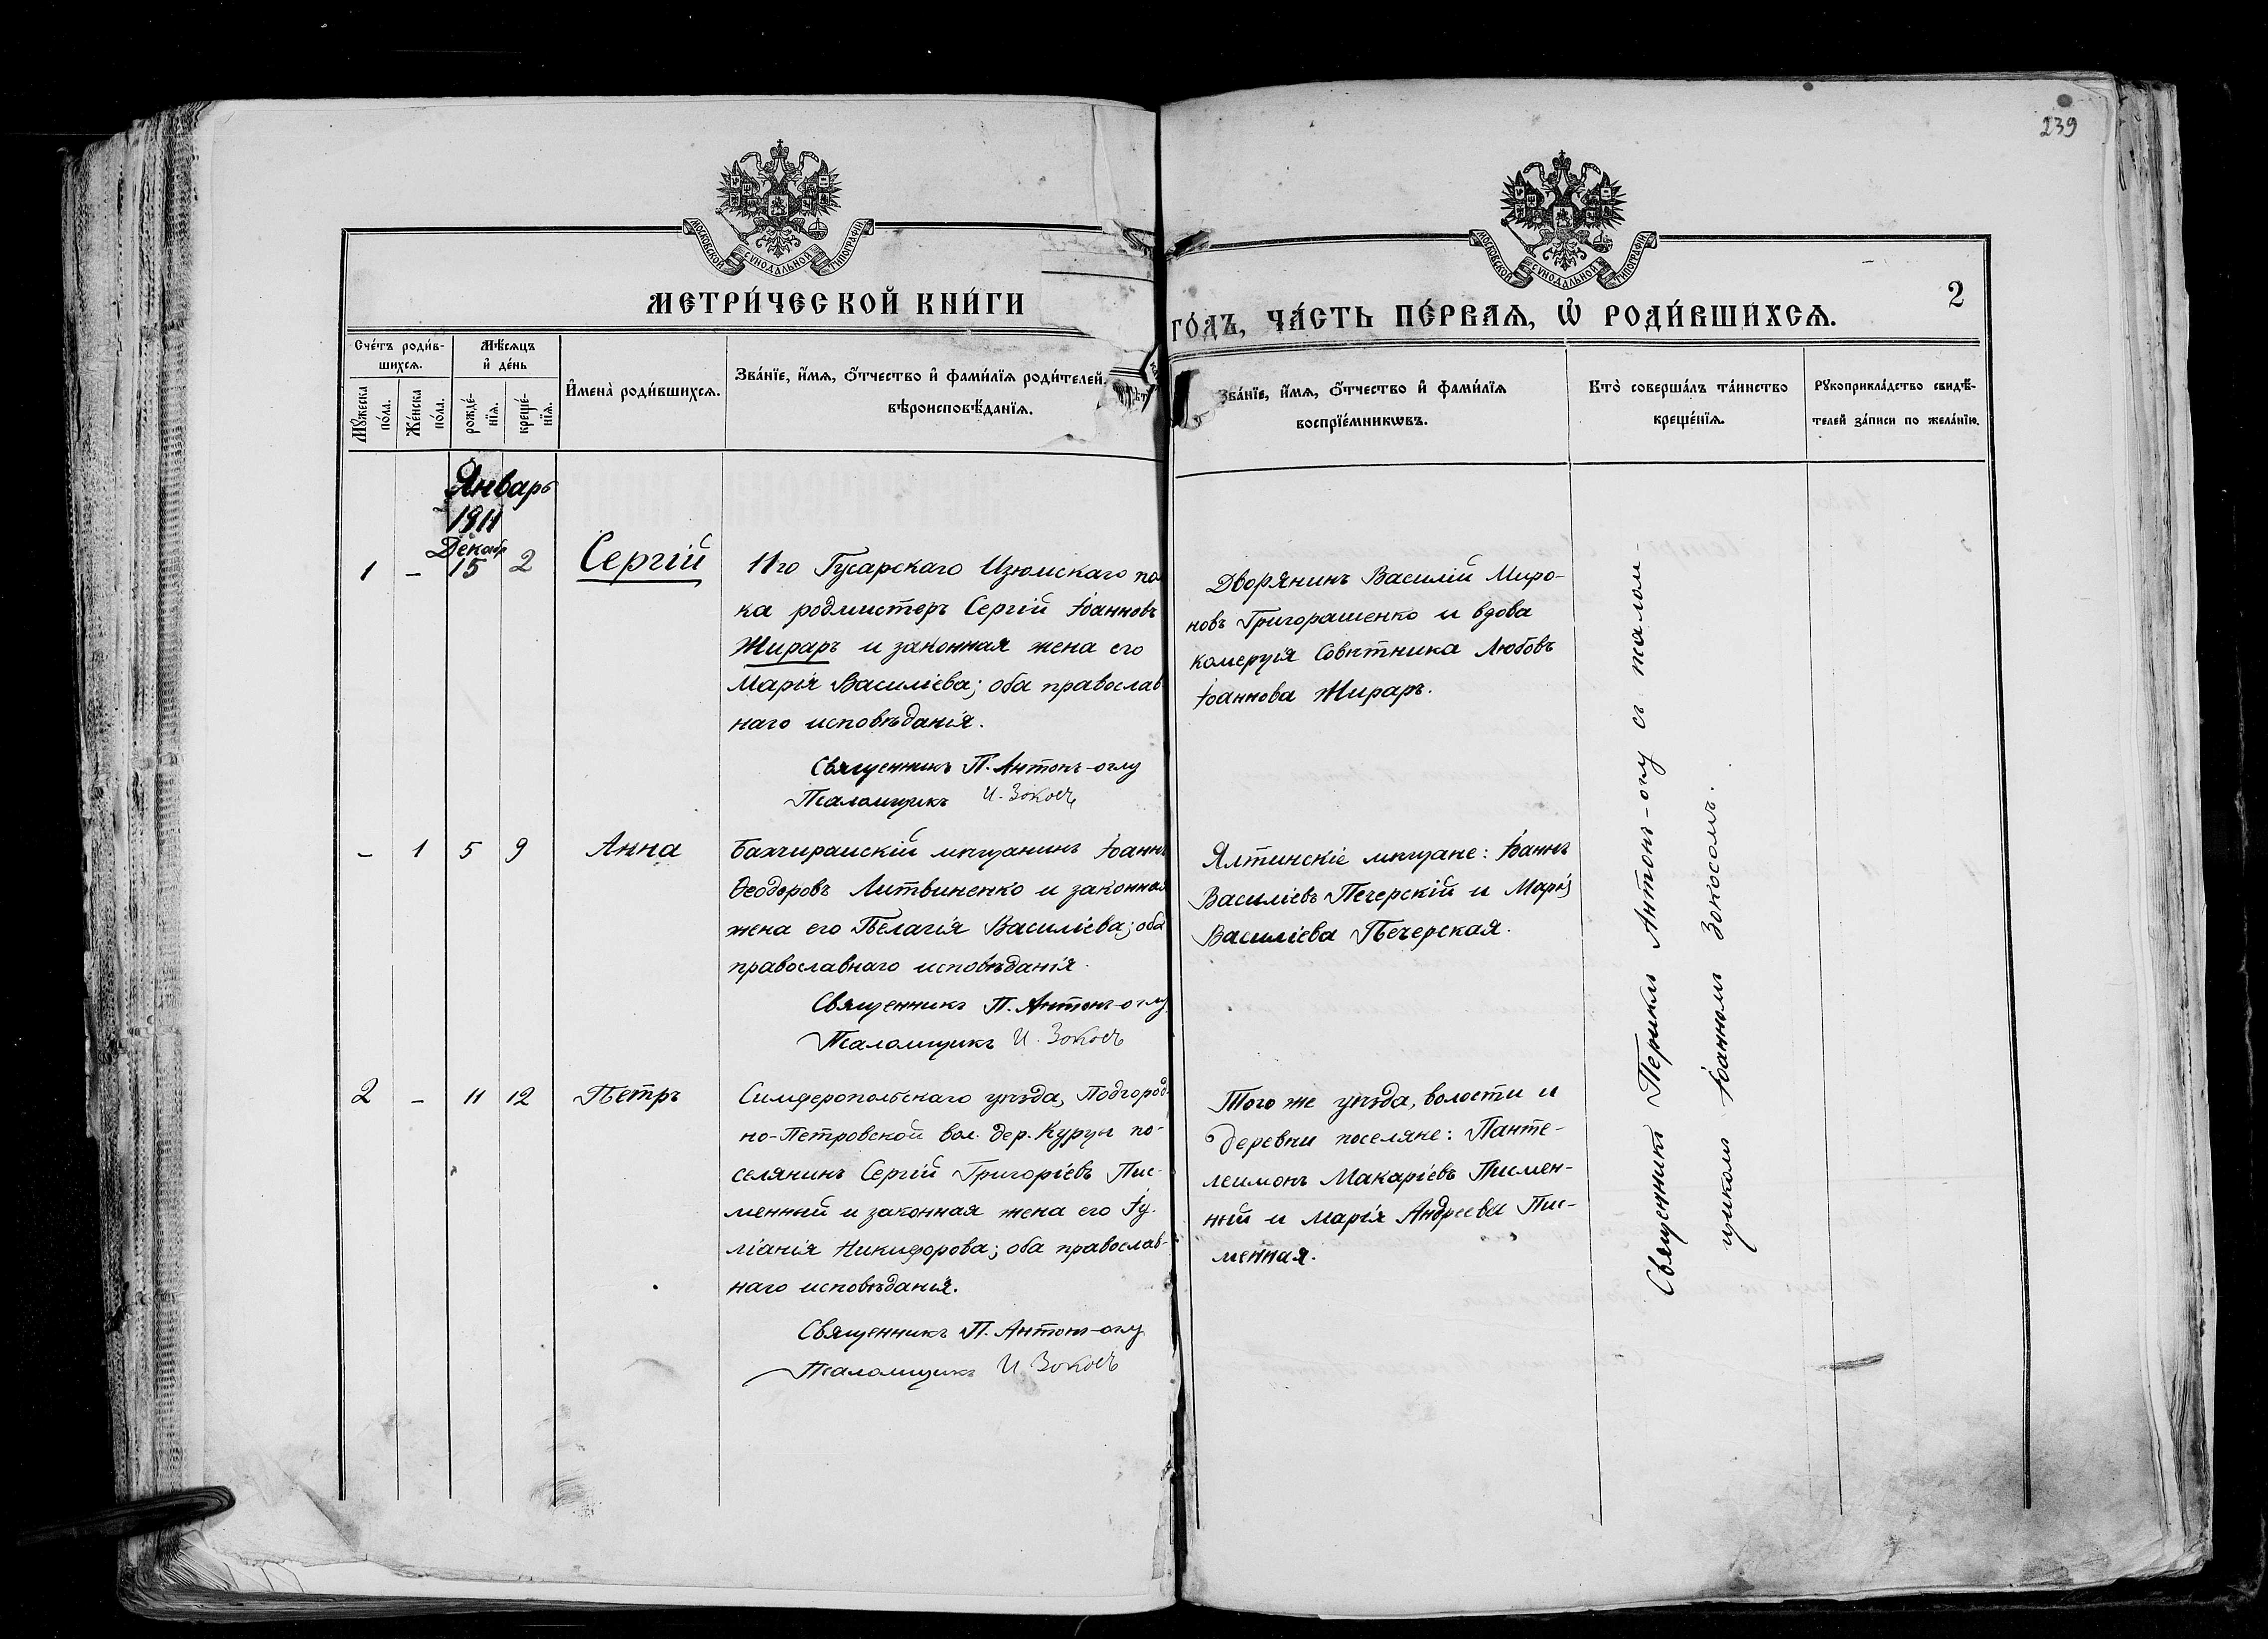 239
МОСКОВСКОЙ СѴНОДАЛЬНОЙ ТИПОГРАФІИ
МОСКОВСКОЙ СѴНОДАЛЬНОЙ ТИПОГРАФІИ
МЕТРИ́ЧЕСКОЙ КНИ́ГИ
ГО́ДЪ, ЧА́СТЬ ПЕ́РВАѦ, Ѡ҆ РОДИ́ВШИХСѦ.
2
Сче́тъ роди́в-
шихсѧ.
Мꙋ́жеска
по́ла.
Же́нска
по́ла.
Мѣ́сѧцъ
и҆ де́нь
рожде́-
нїѧ.
креще́-
нїѧ.
И҆мена̀ роди́вшихсѧ.
Зва́нїе, и҆́мѧ, ѻ҆́тчество и҆ фами́лїѧ роди́телей,
вѣроисповѣ́данїѧ.
Зва́нїе, и҆́мѧ, ѻ҆́тчество и҆ фами́лїѧ
воспрїе́мникѡвъ.
Кто̀ соверша́лъ та́инство
креще́нїѧ.
Рꙋкоприкла́дство свидѣ́-
телей за́писи по жела́нїю.
Январь
1911
Декабр
1 - 15 2 Сергій
11го Гусарскаго Изюмскаго пол
ка родмисторъ Сергій Іоанновъ
Жираръ и законная жена его
Марія Василіева; оба православ
наго исповѣданія.
Священникъ П. Антонъ-оглу
Псаломщикъ И. Зокосъ
Дворянинъ Василій Миро-
новъ Григорашенко и вдова
комерція Совѣтника Любовь
Іоаннова Жираръ.
- 1 5 9 Анна
Бахчираискій мѣщанинъ Іоаннъ
Ѳеодоровъ Литвиненко и законная
жена его Пелагія Василіева; оба
православнаго исповѣданія.
Священникъ П. Антонъ-оглу
Псаломщикъ И. Зокосъ
Ялтинскіе мѣщане: Іоаннъ
Василіевъ Печерскій и Марія
Василіева Печерская.
2 - 11 12 Петръ
Симферопольскаго уѣзда, Подгород-
но-Петровской вол. дер. Курцы по-
селянинъ Сергій Григоріевъ Пис-
менный и законная жена его Іу-
ліанія Никифорова; оба православ-
наго исповѣданія.
Священникъ П. Антонъ-оглу
Псаломщикъ И. Зокосъ
Того же уѣзда, волости и
деревни поселяне: Панте-
леимонъ Макаріевъ Писмен-
ный и Марія Андреева Пис-
менная.
Священникъ Периклъ Антонъ-оглу съ псалом-
щикомъ Іоанномъ Зокосомъ.